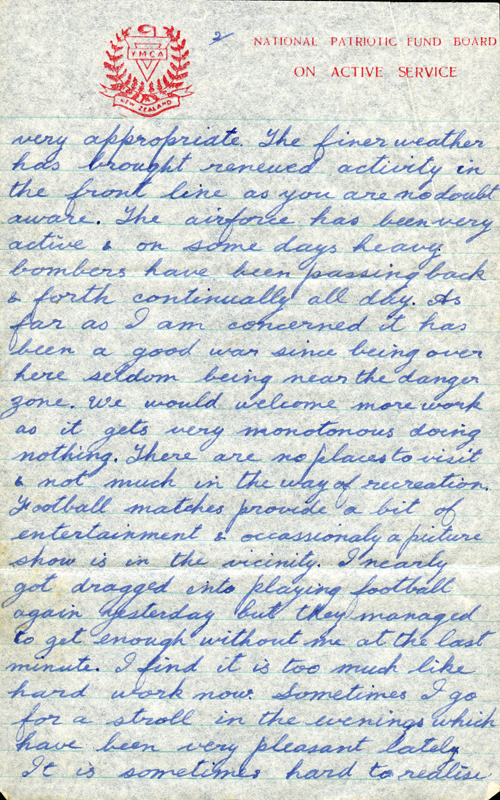 2/
NATIONAL PATRIOTIC FUND BOARD
ON ACTIVE SERVICE
YMCA
NEW ZEALAND
very appropriate. The finer weather
has brought renewed activity in
the front line as you are no doubt
aware. The airforce has been very
active & on some days heavy
bombers have been passing back
& forth continually all day. As
far as I am concerned it has
been a good war since being over
here seldom being near the danger
zone. We would welcome more work
as it gets very monotonous doing
nothing. There are no places to visit
& not much in the way of recreation.
Football matches provide a bit of
entertainment & occassionaly a picture
show is in the vicinity. I nearly
got dragged into playing football
again yesterday but they managed
to get enough without me at the last
minute. I find it is too much like
hard work now. Sometimes I go
for a stroll in the evenings which
have been very pleasant lately
It is sometimes hard to realise